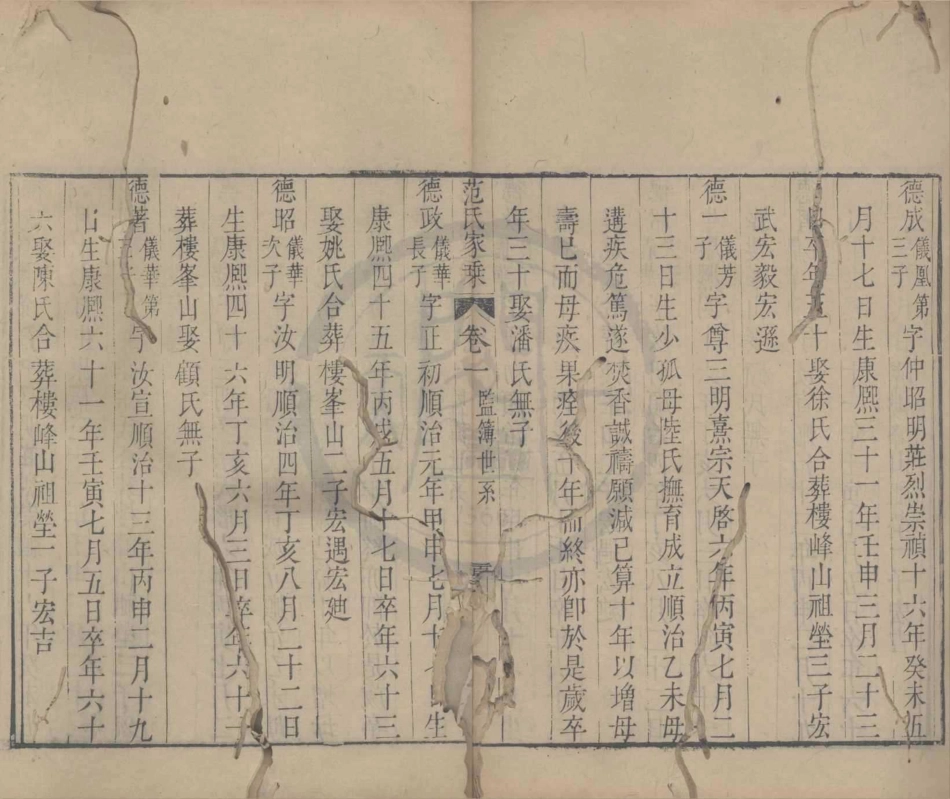 德成儀鳳第三子字仲昭明莊烈崇禎十六年癸未五
月十七日生康熙三十一年壬申三月二十三
日卒年五十娶徐氏合葬樓峰山祖塋三子宏
武宏毅宏遜
德一儀芳子字尊三明熹宗天啓六年丙寅七月二
十三日生少孤母陸氏撫育成立順治乙未母
遘疾危篤遂焚香誠禱願減己算十年以增母
壽已而母疾果痊後十年而終亦卽於是歲卒
年三十娶潘氏無子
范氏家乘 卷一 監簿世系
德政儀華長子字正初順治元年甲申七月十日生
康熙四十五年丙戌五月十七日卒年六十三
娶姚氏合葬樓峯山二子宏遇宏廸
德昭儀華次子字汝明順治四年丁亥八月二十二日
生康熙四十六年丁亥六月三日卒年六十一
葬樓峯山娶顧氏無子
德著儀華第三子字汝宣順治十三年丙申二月十九
日生康熙六十一年壬寅七月五日卒年六十
六娶陳氏合葬樓峰山祖塋一子宏吉